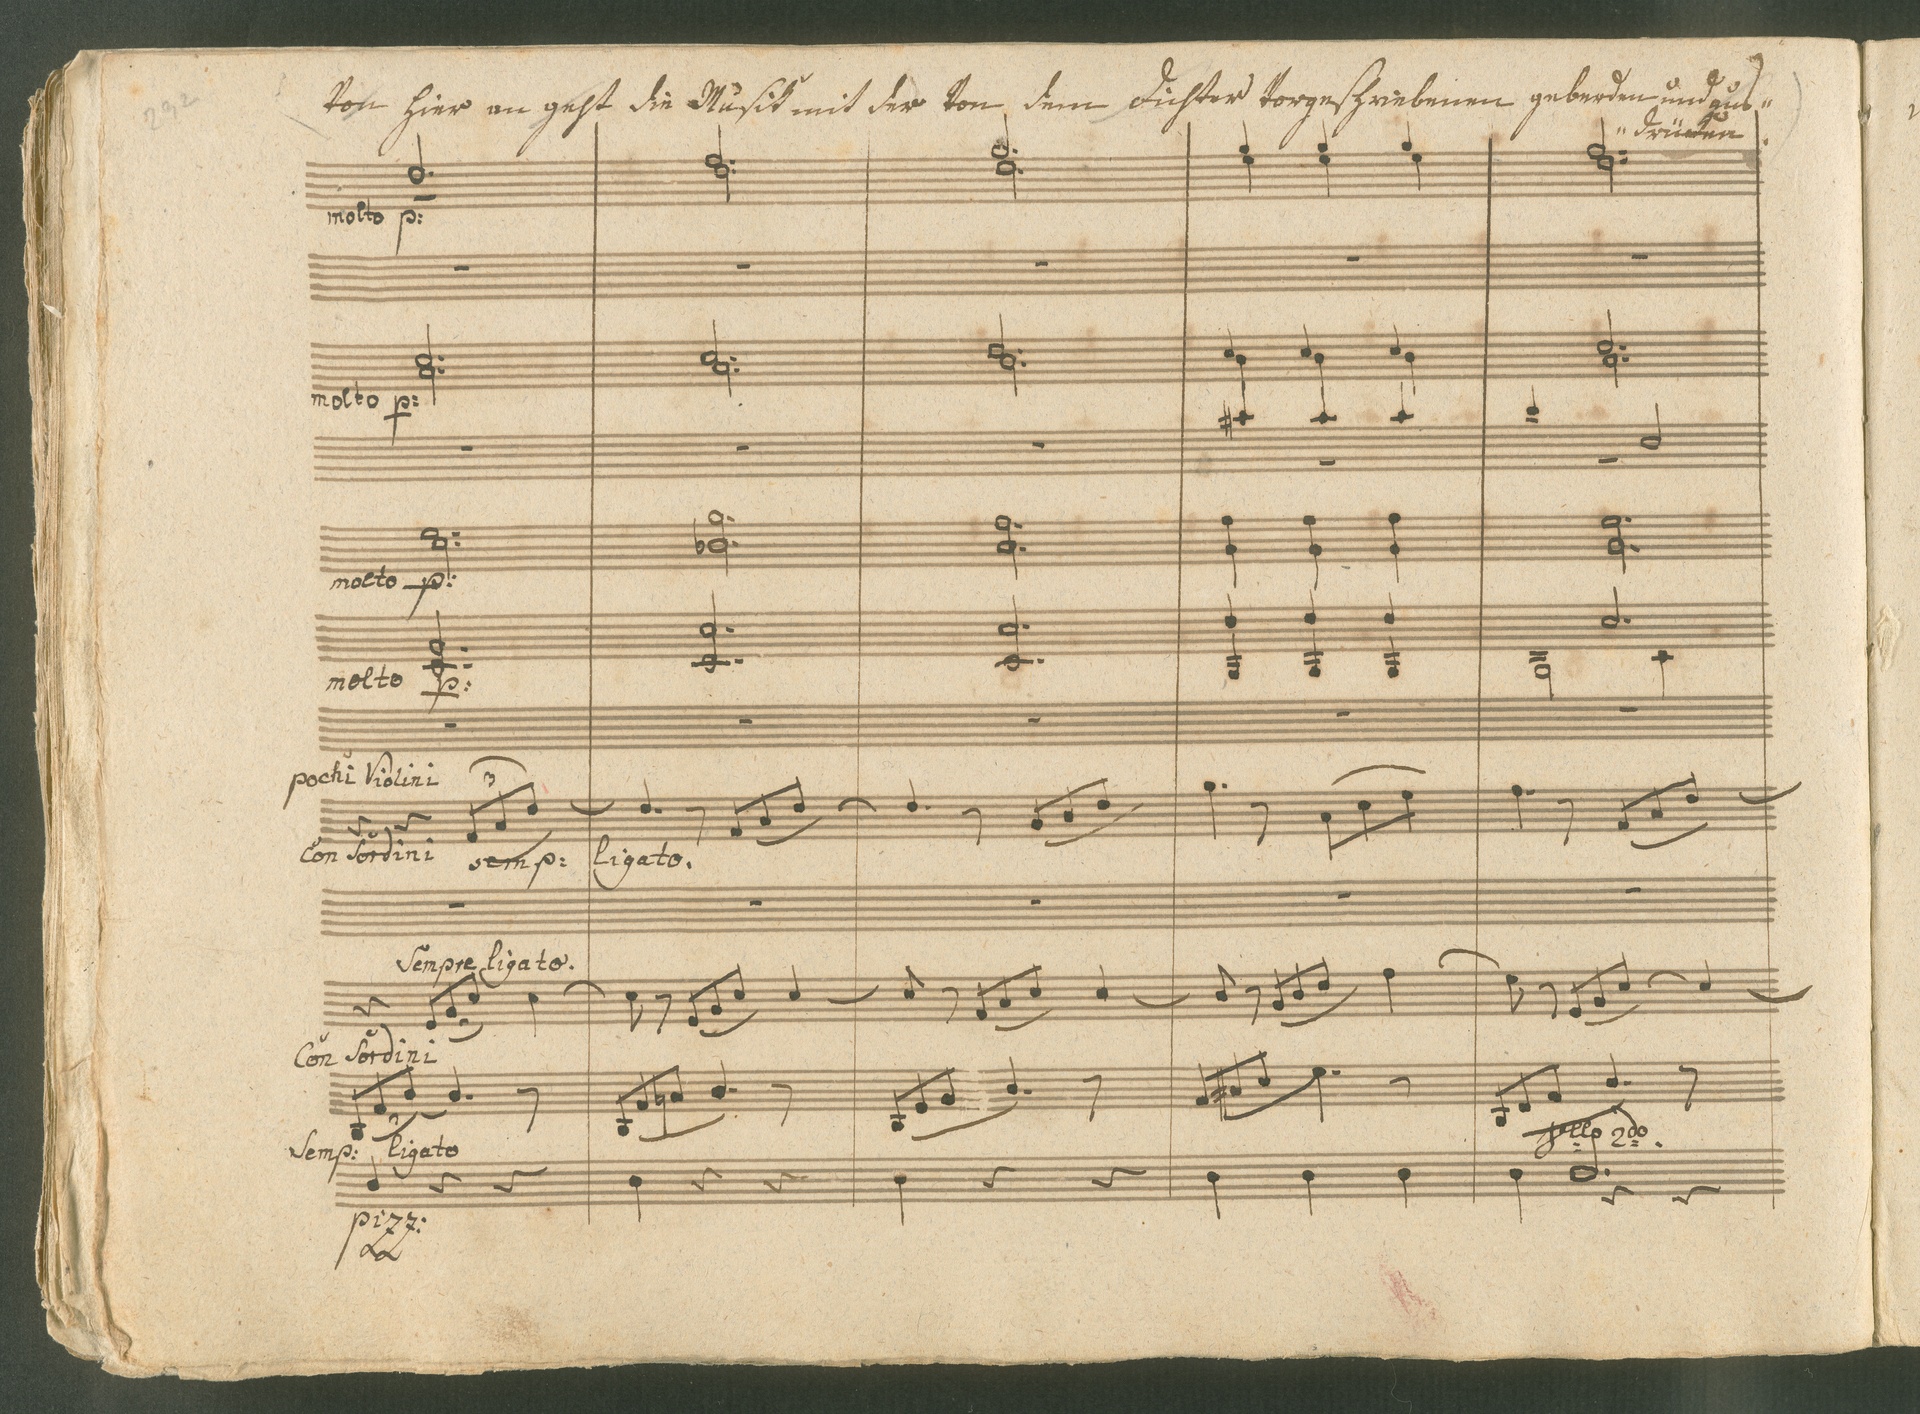 Von hier an geht die Musik mit der Von dem Dichter Vorgeschriebenen geberden und aus=
=drücken
molto p:
molto p:
molto p:
molto p:
pochi Violini
3
Con Sordini semp: ligato.
Sempre ligato.
Con Sordini
Semp: ligato
2do.
pizz: